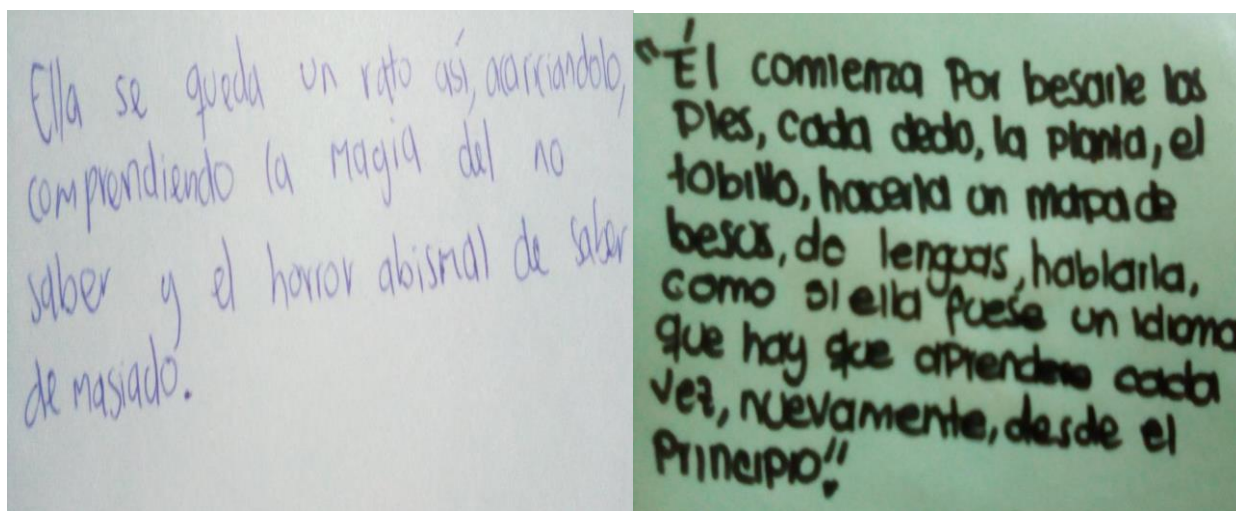 Ella se queda un rato así, acarriandolo,
comprendiendo la magia del no
saber y el horror abismal de saber
demasiado.
"Él comienza Por besarle los
Pies, cada dedo, la planta, el
tobillo, hacerla un mapa de
besos, de lenguas, hablarla,
como si ella fuese un idioma
que hay que aprender cada
vez, nuevamente, desde el
Principio".